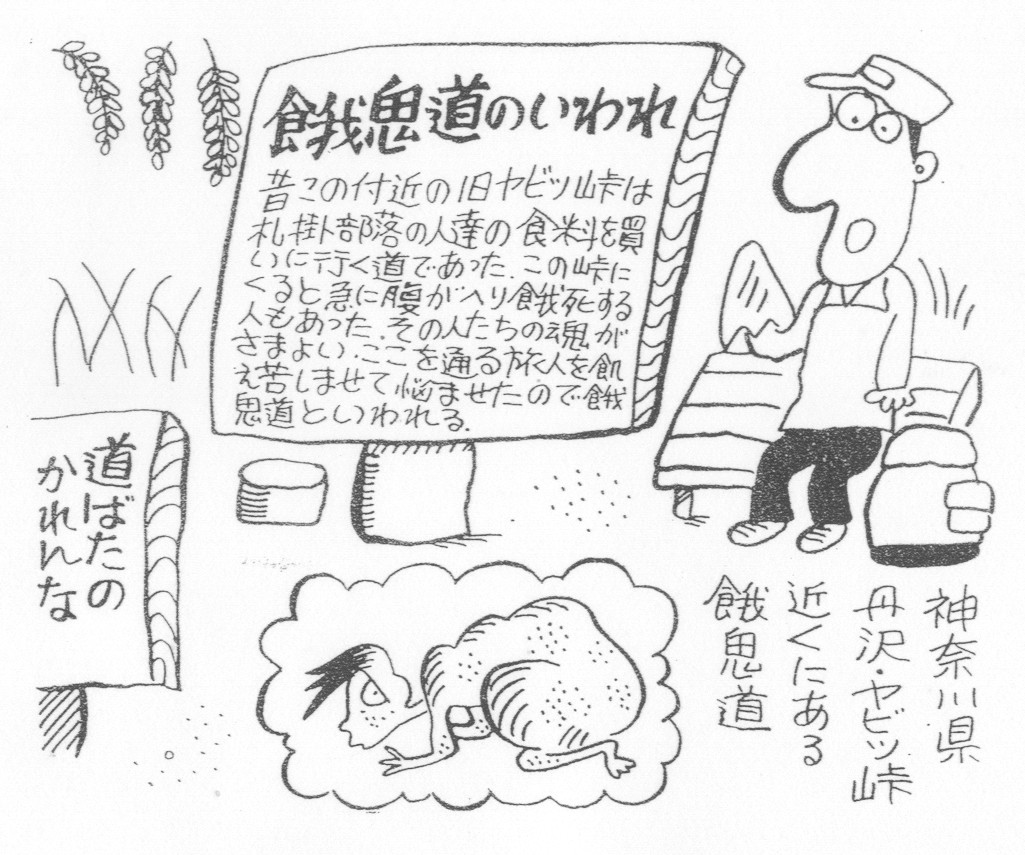 餓鬼道のいわれ
昔この付近の旧ヤビツ峠は
札掛部落の人達の食料を買
いに行く道であった.この峠に
くると急に腹がへり餓死する
人もあった.その人たちの魂が
さまよい.ここを通る旅人を飢
え苦しませて悩ませたので餓
鬼道といわれる.
道ばたの
かれんな
神奈川県
丹沢・ヤビツ峠
近くにある
餓鬼道